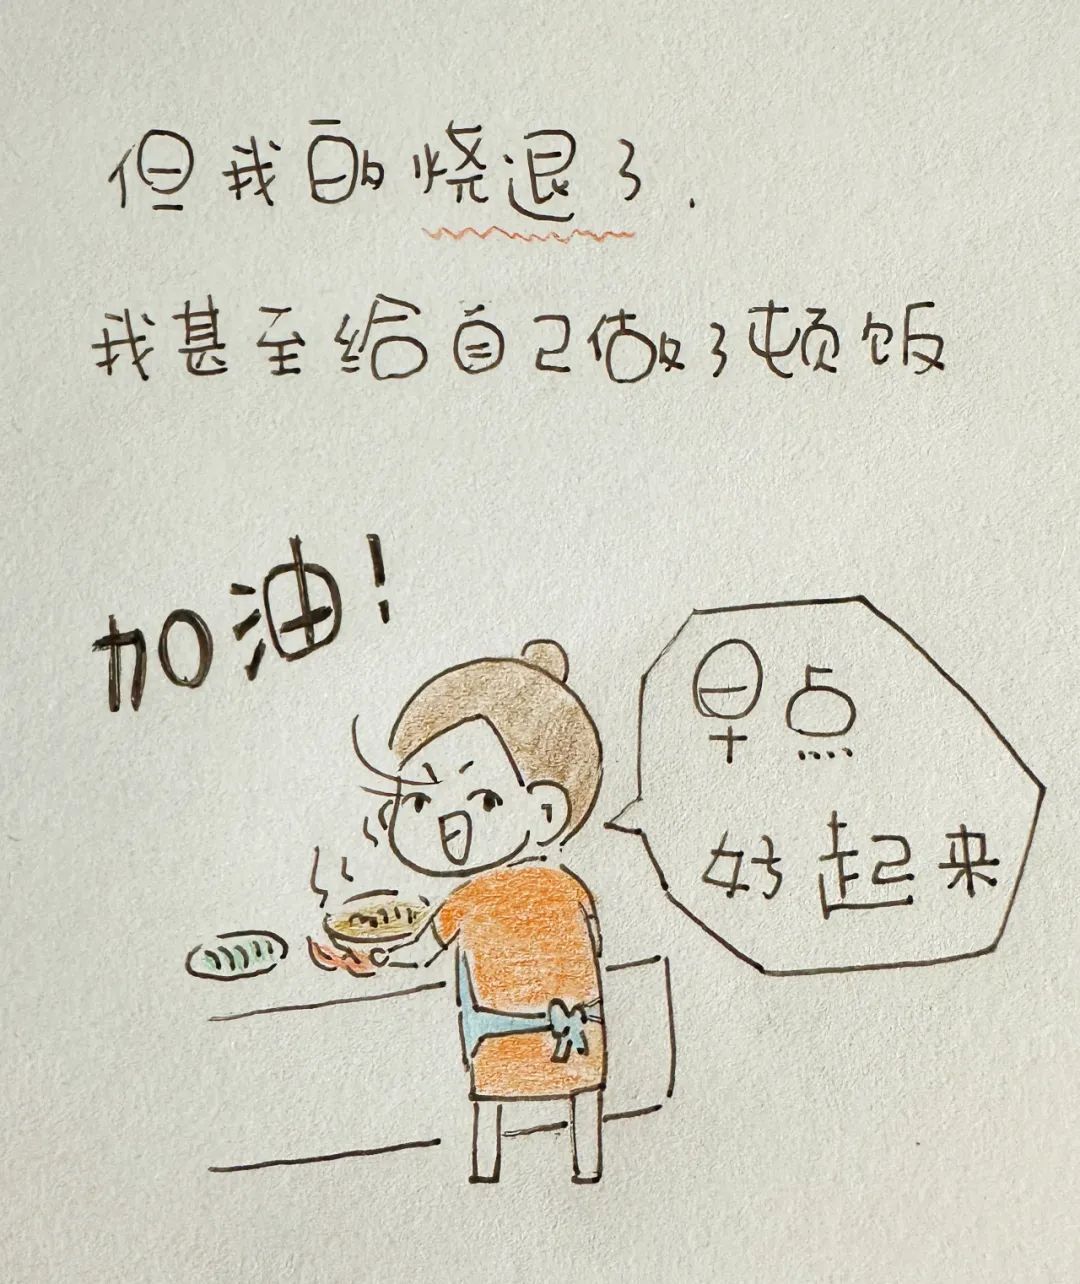 但我的烧退了.
我甚至给自己做了顿饭
加油!
早点
好起来